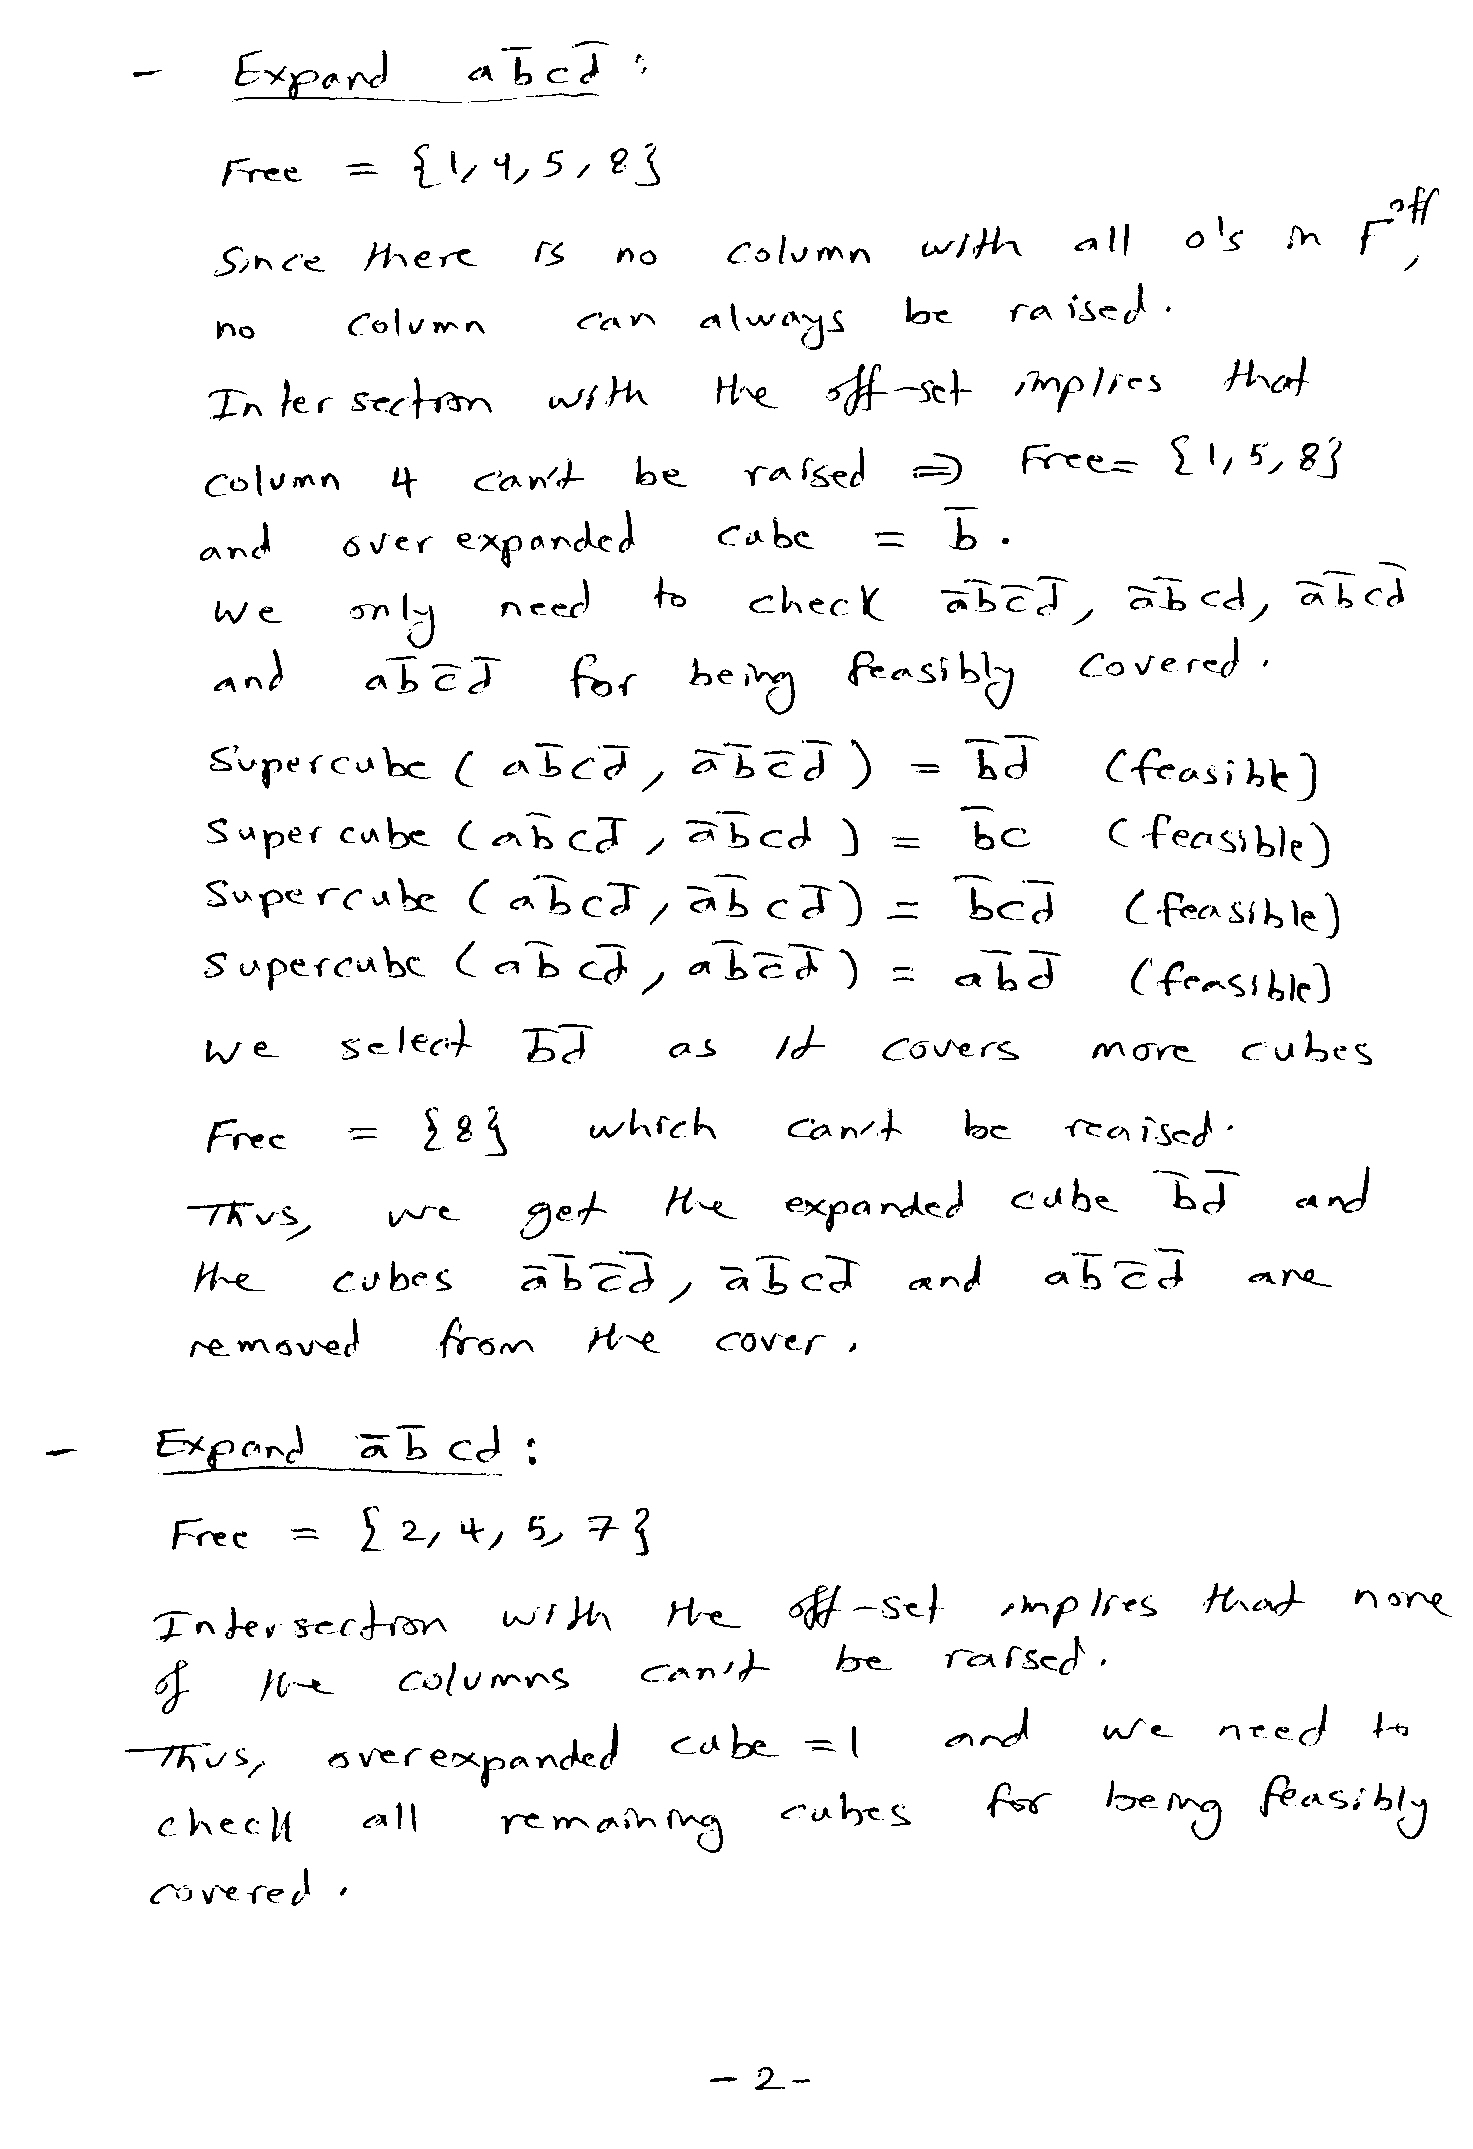 - Expand ab̅cd̅ :
Free = {1, 4, 5, 8}
Since there is no column with all 0's in F^off,
no column can always be raised.
Intersection with the off-set implies that
column 4 can't be raised ⇒ Free = {1, 5, 8}
and over expanded cube = b̅.
We only need to check a̅b̅c̅d̅, a̅b̅cd, a̅b̅cd̅
and ab̅c̅d̅ for being feasibly covered.
Supercube (ab̅cd̅, a̅b̅c̅d̅) = b̅d̅ (feasible)
Supercube (ab̅cd̅, a̅b̅cd) = b̅c (feasible)
Supercube (ab̅cd̅, a̅b̅cd̅) = b̅cd̅ (feasible)
Supercube (ab̅cd̅, ab̅c̅d̅) = ab̅d̅ (feasible)
We select b̅d̅ as it covers more cubes
Free = {8} which can't be reaised.
Thus, we get the expanded cube b̅d̅ and
the cubes a̅b̅c̅d̅, a̅b̅cd̅ and ab̅c̅d̅ are
removed from the cover.
- Expand a̅b̅cd :
Free = {2, 4, 5, 7}
Intersection with the off-set implies that none
of the columns can't be raised.
Thus, overexpanded cube = 1 and we need to
check all remaining cubes for being feasibly
covered.
- 2 -